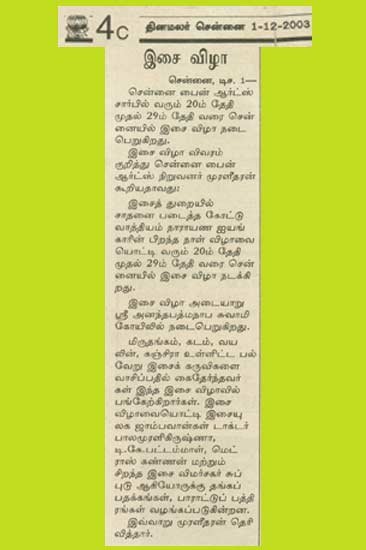 4C தினமலர் சென்னை 1-12-2003
இசை விழா
சென்னை, டிச. 1—
சென்னை பைன் ஆர்ட்ஸ்
சார்பில் வரும் 20ம் தேதி
முதல் 29ம் தேதி வரை சென்
னையில் இசை விழா நடை
பெறுகிறது.
இசை விழா விவரம்
குறித்து சென்னை பைன்
ஆர்ட்ஸ் நிறுவனர் முரளீதரன்
கூறியதாவது:
இசைத் துறையில்
சாதனை படைத்த கோட்டு
வாத்தியம் நாராயண ஐயங்
காரின் பிறந்த நாள் விழாவை
யொட்டி வரும் 20ம் தேதி
முதல் 29ம் தேதி வரை சென்
னையில் இசை விழா நடக்கி
றது.
இசை விழா அடையாறு
ஸ்ரீ அனந்தபத்மநாப சுவாமி
கோயிலில் நடைபெறுகிறது.
மிருதங்கம், கடம், வய
லின், கஞ்சிரா உள்ளிட்ட பல்
வேறு இசைக் கருவிகளை
வாசிப்பதில் கைதேர்ந்தவர்
கள் இந்த இசை விழாவில்
பங்கேற்கிறார்கள். இசை
விழாவையொட்டி இசையு
லக ஜாம்பவான்கள் டாக்டர்
பாலமுரளிகிருஷ்ணா,
டி.கே.பட்டம்மாள், மெட்
ராஸ் கண்ணன் மற்றும்
சிறந்த இசை விமர்சகர் சுப்
புடு ஆகியோருக்கு தங்கப்
பதக்கங்கள், பாராட்டுப் பத்தி
ரங்கள் வழங்கப்படுகின்றன.
இவ்வாறு முரளீதரன் தெரி
வித்தார்.